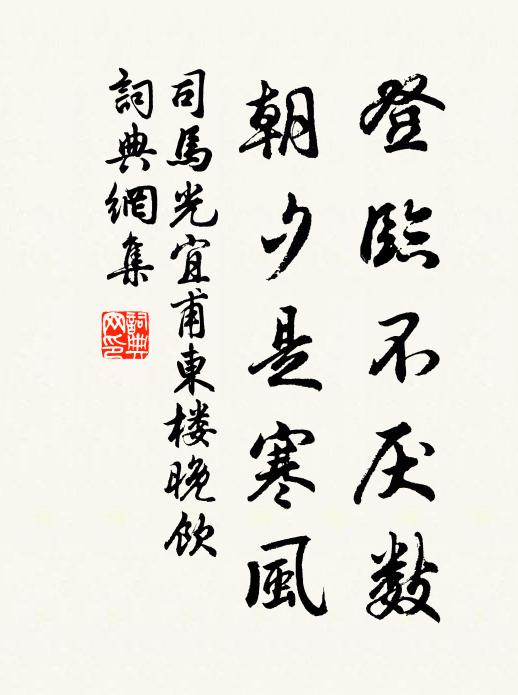 登臨不厌數
朝夕是寒風
司馬光宜甫東楼晚飲
詞典網集
詞典網印